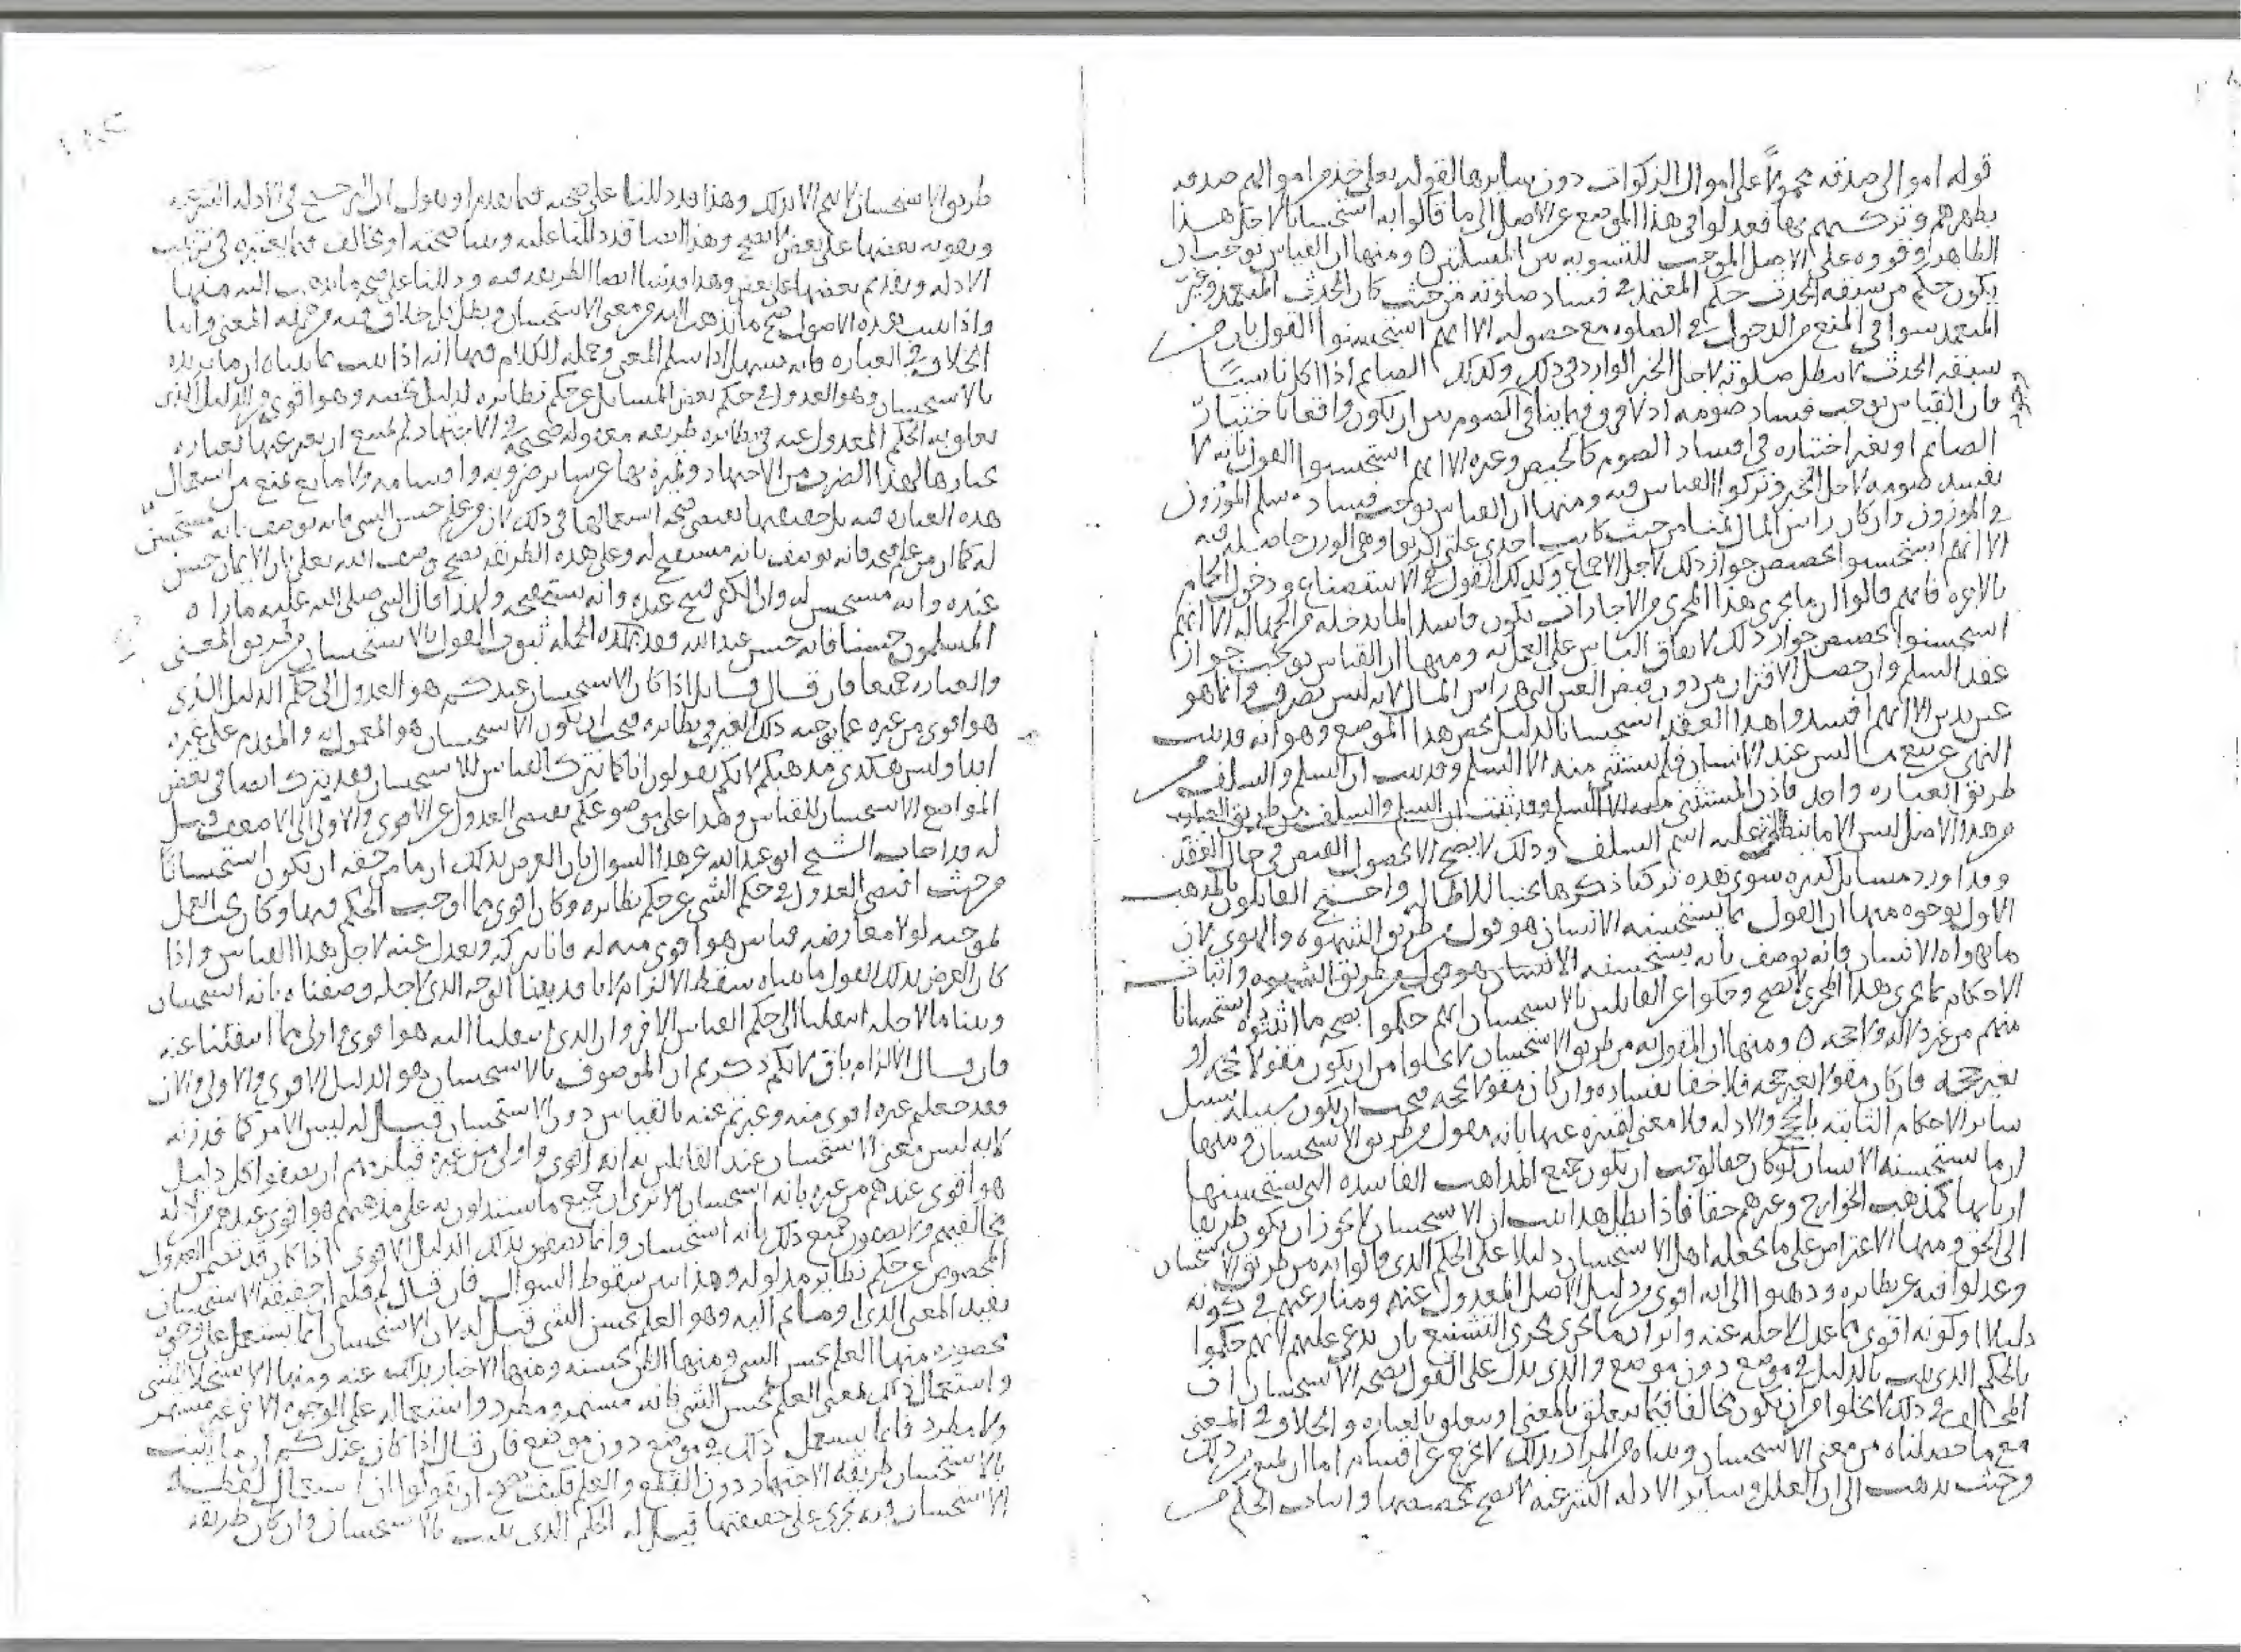 قوله اموالى صدقه محمولا على اموال الزكوات دون سايرها لقوله تعلى خذ من اموالهم صدقه
تطهرهم وتزكيهم بها فعدلوا فى هذا الموضع عن الاصل الى ما قالوا به استحسانا لاجل هذا
الظاهر وقووه على الاصل الموجب للتسويه بين المسلتين ومنها ان القياس يوجب ان
يكون حكم من سبقه الحدث حكم المعتمد فى فساد صلوته من حيث كان الحدث المتعمد وغير
المتعمد سوا فى المنع من الدخول فى الصلوه مع حصوله الا انهم استحسنوا القول بان من
سبقه الحدث لا تبطل صلوته لاجل الخبر الوارد فى ذلك وكذلك الصايم اذا اكل ناسيا
فان القياس يوجب فساد صومه اذ لا فرق فيما ينافى الصوم بين ان يكون واقعا باختيار
الصايم او بغير اختياره فى افساد الصوم كالحيض وغيره الا انهم استحسنوا القول بانه لا
يفسد صومه لاجل الخبر وتركوا القياس فيه ومنها ان القياس يوجب فساد سلم الموزون
فى الموزون وان كان راس المال ثمنا من حيث كانت احدى علتى الربوا وهى الوزن حاصله فيه
الا انهم استحسنوا تخصيص جواز ذلك لاجل الاجماع وكذلك القول فى الاستصناع ودخول الحمام
بالاجره فانهم قالوا ان ما يجرى هذا المجرى من الاجارات يكون فاسدا لما يدخله من الجهاله الا انهم
استحسنوا تخصيص جواز ذلك لاتفاق الناس على العمل به ومنها ان القياس يوجب جواز
عقد السلم وان حصل الافتراق من دون قبض العين التى هى راس المال لانه ليس بصرف وانما هو
عين بدين الا انهم افسدوا هذا العقد استحسانا لدليل يخص هذا الموضع وهو انه قد ثبت
النهى عن بيع ما ليس عند الانسان فلم يستثن منه الا السلم وقد ثبت ان السلم والسلف من
طريق العباره واحد فاذن المستثنى
من هذا الاصل ليس الا ما ينطلق عليه اسم السلف وذلك لا يصح الا بحصول القبض فى حال العقد
وقد اورد مسايل كثيره سوى هذه تركنا ذكرها تجنبا للاطاله واحتج القايلون بالمذهب
الاول بوجوه منها ان القول بما يستحسنه الانسان هو قول من طريق الشهوه والهوى لان
ما يهواه الانسان فانه يوصف بانه يستحسنه واثبات
الاحكام بما يجرى هذا المجرى لا يصح وحكوا عن القايلين بالاستحسان انهم حكموا بصحه ما اثبتوه استحسانا
منهم من غير دلاله ولا حجه ومنها ان المقول به من طريق الاستحسان لا يخلوا من ان يكون مقولا بحجه او
بغير حجه فان كان مقولا بغير حجه فلا خفا بفساده وان كان مقولا بحجه فيجب ان يكون سبيله سبيل
ساير الاحكام الثابته بالحجج والادله فلا معنى لتميزه عنها بانه مقول من طريق الاستحسان ومنها
ان ما يستحسنه الانسان لو كان حقا لوجب ان يكون جميع المذاهب الفاسده التى يستحسنها
اربابها كمذهب الخوارج وغيرهم حقا فاذا بطل هذا ثبت ان الاستحسان لا يجوز ان يكون طريقا
الى الحق ومنها الاعتراض على ما يجعله اهل الاستحسان دليلا على الحكم الذى قالوا به من طريق الاستحسان
وعدلوا فيه عن نظايره وذهبوا الى انه اقوى من دليل الاصل المعدول عنه ومنازعتهم فى كونه
دليلا او كونه اقوى مما عدل لاجله عنه وايراد ما يجرى مجرى التشنيع بان يدعى عليهم انهم حكموا
بالحكم الذى يثبت بالدليل فى موضع دون موضع والذى يدل على القول بصحه الاستحسان ان
المخالف فى ذلك لا يخلوا من ان يكون مخالفا فيما يتعلق بالمعنى او يتعلق بالعباره والخلاف فى المعنى
مع ما حصلناه من معنى الاستحسان وبيناه من المراد بذلك لا يخرج عن اقسام اما ان يمنع من ذلك
من حيث يذهب الى ان العلل وساير الادله الشرعيه لا يصح تخصيصها واثبات الحكم من
طريق الاستحسان لا يتم الا بذلك وهذا قد دللنا على صحته فيما تقدم او يقول ان الترجيح فى الادله الشرعيه
وتقويه بعضها على بعض لا يصح وهذا ايضا قد دللنا عليه وبينا صحته او يخالف فيما يعتبره فى ترتيب
الادله وتقديم بعضها على بعض وهذا قد بينا ايضا الطريقه فيه ودللنا على صحه ما يذهب اليه منها
واذا ثبتت هذه الاصول صح ما نذهب اليه من معنى الاستحسان وبطل كل خلاف فيه من جهه المعنى واما
الخلاف فى العباره فانه يسهل اذا سلم المعنى وجمله الكلام فيها انه اذا ثبت بما بيناه ان ما نريده
بالاستحسان وهو العدول فى حكم بعض المسايل عن حكم نظايره لدليل يخصه وهو اقوى من الدليل الذى
تعلق به الحكم المعدول عنه فى نظايره طريقه معقوله صحيحه فى الاجتهاد لم يمتنع ان يعبر عنها بعباره
نختارها لهذا الضرب من الاجتهاد ونميزه بها عن ساير ضروبه واقسامه ولا مانع يمنع من استعمال
هذه العباره فيه بل حقيقتها تقتضى صحه استعمالها فى ذلك لان من علم حسن الشى فانه يوصف بانه مستحسن
له كما ان من علم قبحه فانه يوصف بانه مستقبح له وعلى هذه الطريقه يصح وصف الله تعلى بان الايمان حسن
عنده وانه مستحسن له وان الكفر قبيح عنده وانه يستقبحه ولهذا قال النبى صلى الله عليه ما راه
المسلمون حسنا فانه حسن عند الله فقد بان بهذه الجمله ثبوت القول بالاستحسان من طريق المعنى
والعباره جميعا فان قال قايل اذا كان الاستحسان عندكم هو العدول الى حكم الدليل الذى
هو اقوى من غيره عما يوجبه ذلك الغير فى نظايره فيجب ان يكون الاستحسان هو المعمول به والمقدم على غيره
ابدا وليس هكذى مذهبكم لانكم تقولون انا كما نترك القياس للاستحسان فقد نترك ايضا فى بعض
المواضع الاستحسان للقياس وهذا على موضوعكم يقتضى العدول عن الاقوى والاولى الى الاضعف قيل
له قد اجاب الشيخ ابو عبد الله عن هذا السوال بان الغرض بذلك ان ما من حقه ان يكون استحسانا
من حيث اقتضى العدول فى حكم الشى عن حكم نظايره وكان اقوى مما اوجب الحكم فيها وكان يجب العمل
بموجبه لولا معارضه قياس هو اقوى منه له فانا نتركه ونعدل عنه لاجل هذا القياس واذا
كان الغرض بذلك القول ما بيناه سقط الالزام لانا قد بقينا الوجه الذى لاجله وصفناه بانه استحسان
وبينا ما لاجله انتقلنا الى حكم القياس الاخر وان الذى انتقلنا اليه هو اقوى واولى مما انتقلنا عنه
فان قال الالزام باق لانكم ذكرتم ان الموصوف بالاستحسان هو الدليل الاقوى والاولى والان
فقد جعلتم غيره اقوى منه وعبرتم عنه بالقياس دون الاستحسان قيل له ليس الامر كما قدرته
لانه ليس معنى الاستحسان عند القايلين به انه اقوى واولى من غيره فيلزمهم ان يصفوا كل دليل
هو اقوى عندهم من غيره بانه استحسان الا ترى ان جميع ما يستدلون به على مذهبهم هو اقوى عندهم من ادله
مخالفيهم ولا يصفون جميع ذلك بانه استحسان وانما يصفون بذلك الدليل الاقوى اذا كان قد تضمن العدول
المخصوص عن حكم نظاير مدلوله وهذا بين سقوط السوال فان قال لم قلتم ان حقيقه الاستحسان
تفيد المعنى الذى اومأتم اليه وهو العلم بحسن الشى قيل له لان الاستحسان انما يستعمل على وجوه
محصوره منها العلم بحسن الشى ومنها الظن بحسنه ومنها الاخبار بذلك عنه ومنها الاستحلا للشى
واستعمال ذلك بمعنى العلم بحسن الشى فانه مستمر ومطرد واستعماله على الوجوه الاخر غير مستمر
ولا مطرد فانما يستعمل ذلك فى موضع دون موضع فان قال اذا كان عندكم ان ما يثبت
بالاستحسان طريقه الاجتهاد دون القطع والعلم فكيف يصح ان تقولوا ان استعمال لفظه
الاستحسان فيه يجرى على حقيقتها قيل له الحكم الذى يثبت بالاستحسان وان كان طريقه